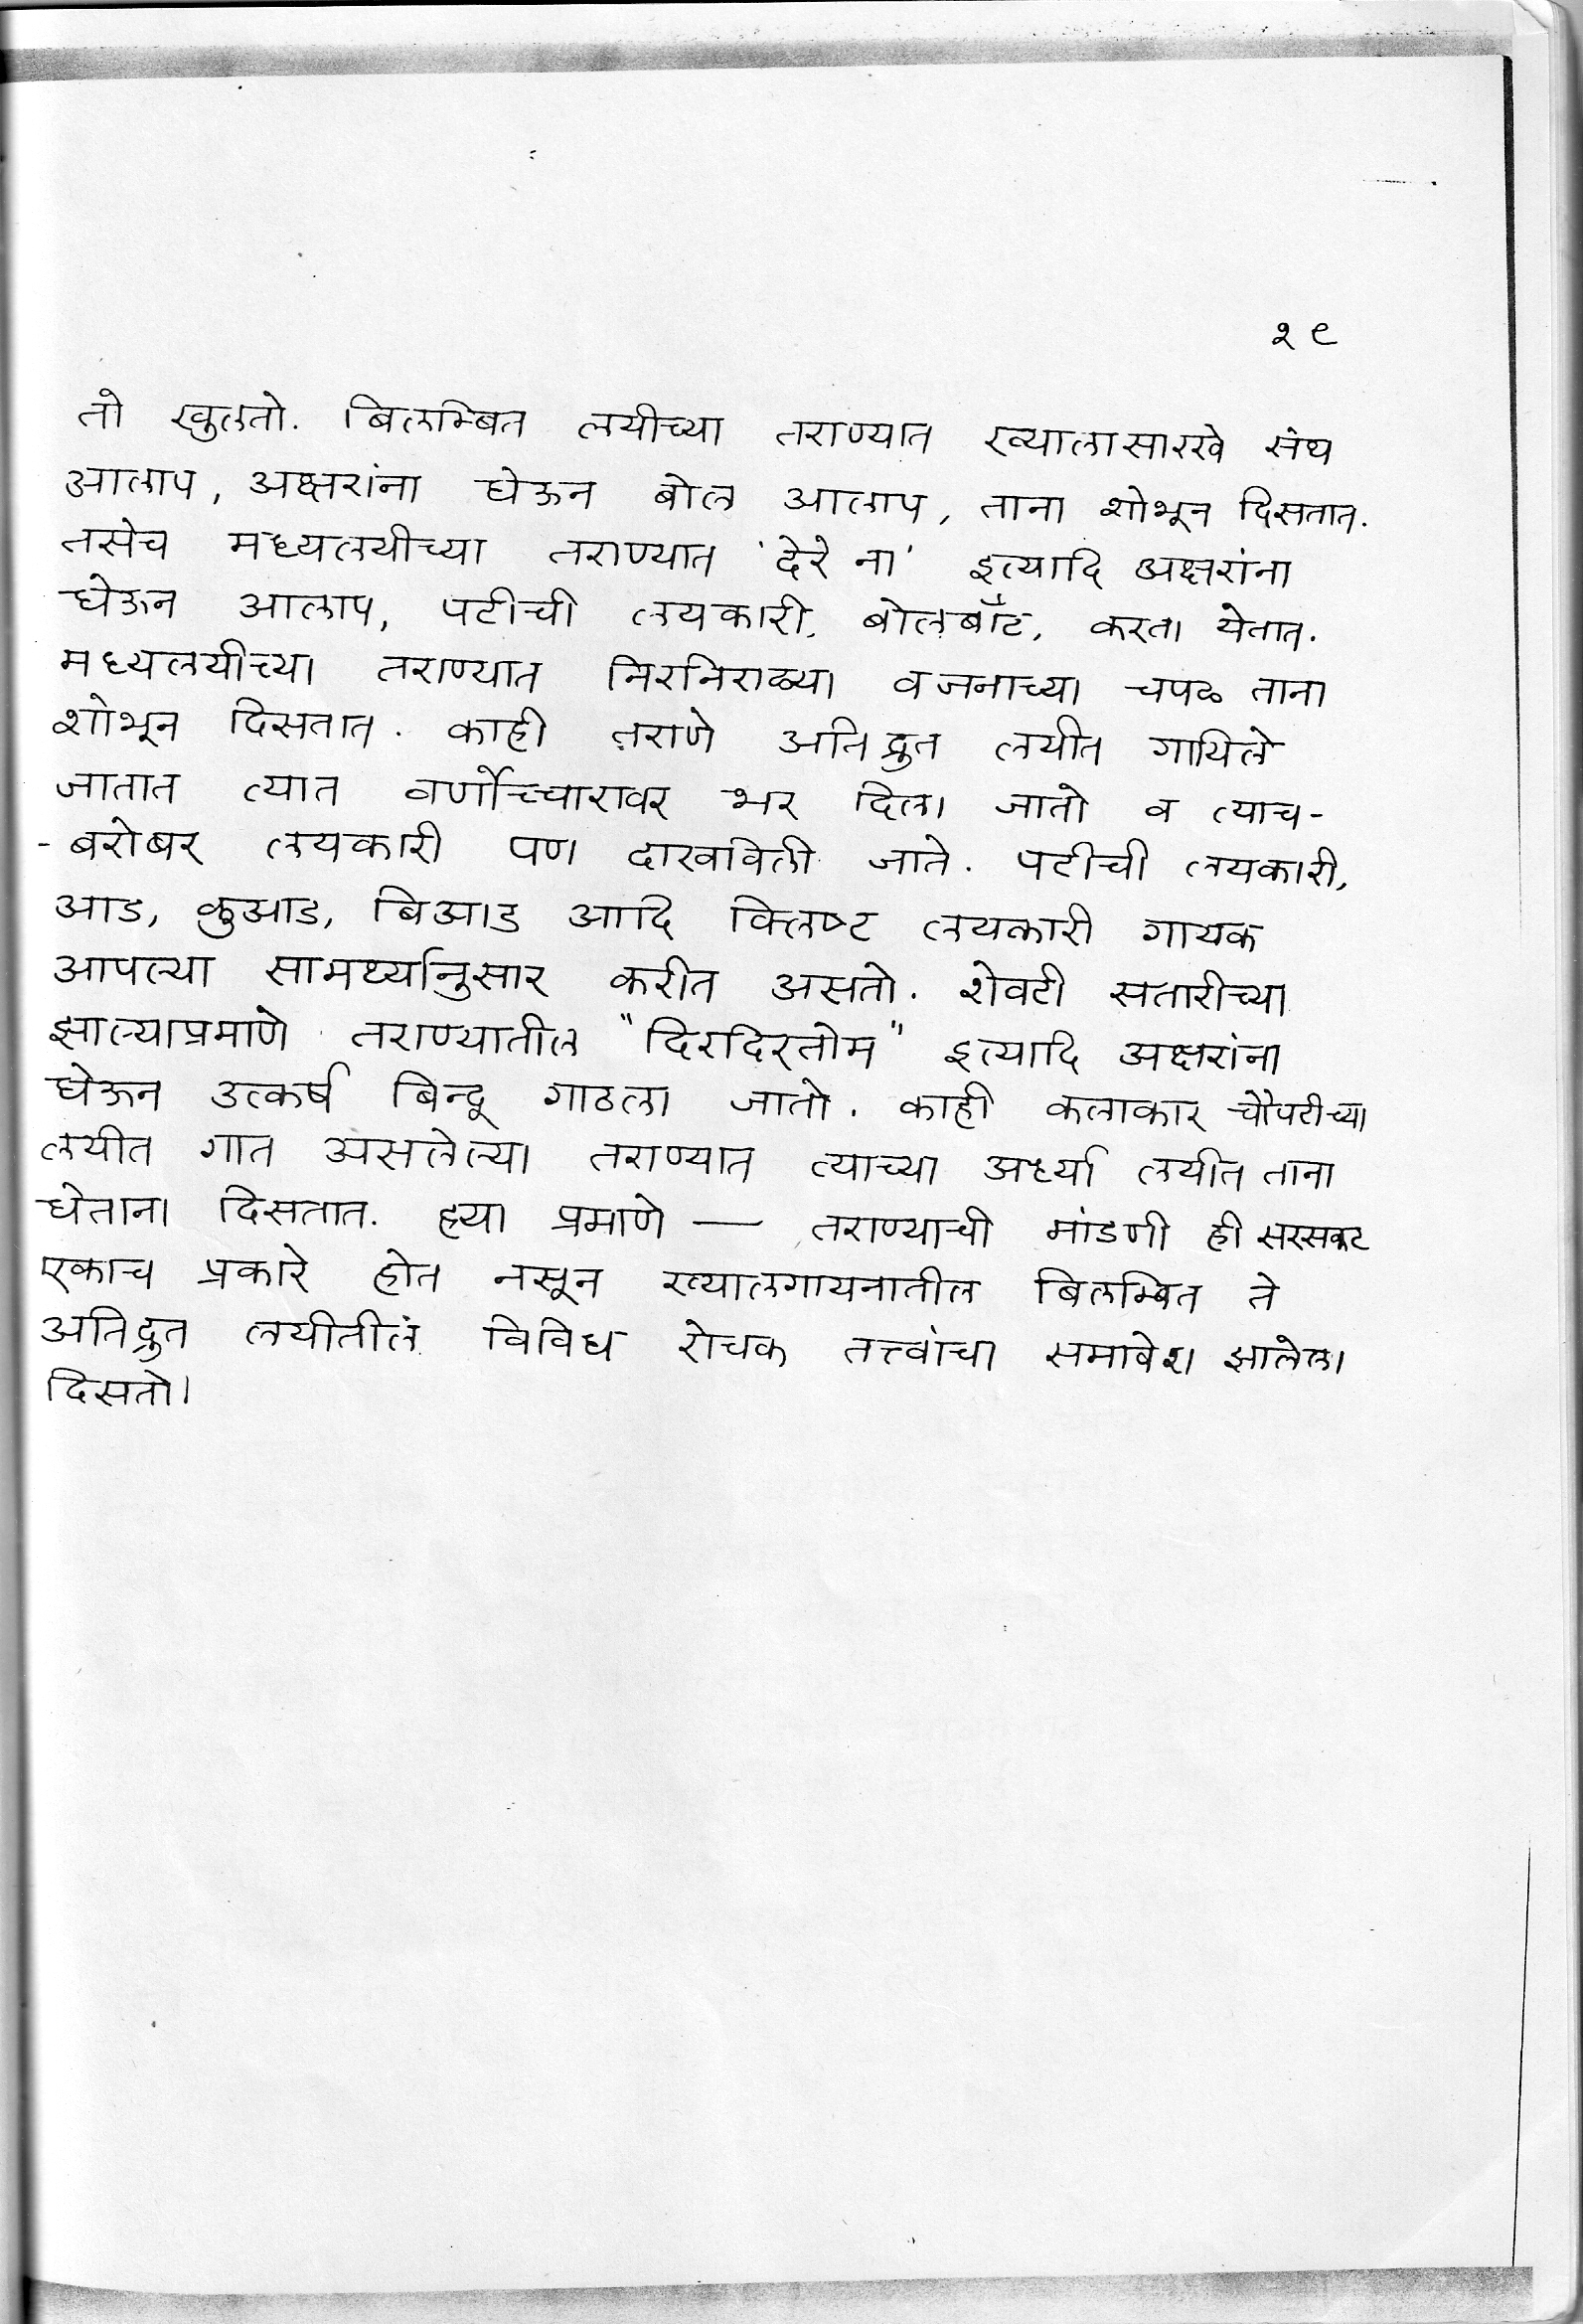 २९
तो खुलतो. बिलम्बित लयीच्या तराण्यात ख्यालासारखे संथ
आलाप, अक्षरांना घेऊन बोल आलाप, ताना शोभून दिसतात.
तसेच मध्यलयीच्या तराण्यात 'देरे ना' इत्यादि अक्षरांना
घेऊन आलाप, पटीची लयकारी, बोलबाँट, करता येतात.
मध्यलयीच्या तराण्यात निरनिराळ्या वजनाच्या चपळ ताना
शोभून दिसतात. काही तराणे अतिद्रुत लयीत गायिले
जातात त्यात वर्णोच्चारावर भर दिला जातो व त्याच-
-बरोबर लयकारी पण दाखविली जाते. पटीची लयकारी,
आड, कुआड, बिआड आदि क्लिष्ट लयकारी गायक
आपल्या सामर्थ्यानुसार करीत असतो. शेवटी सतारीच्या
झाल्याप्रमाणे तराण्यातील "दिरदिरतोम" इत्यादि अक्षरांना
घेऊन उत्कर्ष बिन्दू गाठला जातो. काही कलाकार चौपटीच्या
लयीत गात असलेल्या तराण्यात त्याच्या अर्ध्या लयीत ताना
घेताना दिसतात. ह्या प्रमाणे — तराण्याची मांडणी ही सरसकट
एकाच प्रकारे होत नसून ख्यालगायनातील बिलम्बित ते
अतिद्रुत लयीतील विविध रोचक तत्त्वांचा समावेश झालेला
दिसतो।